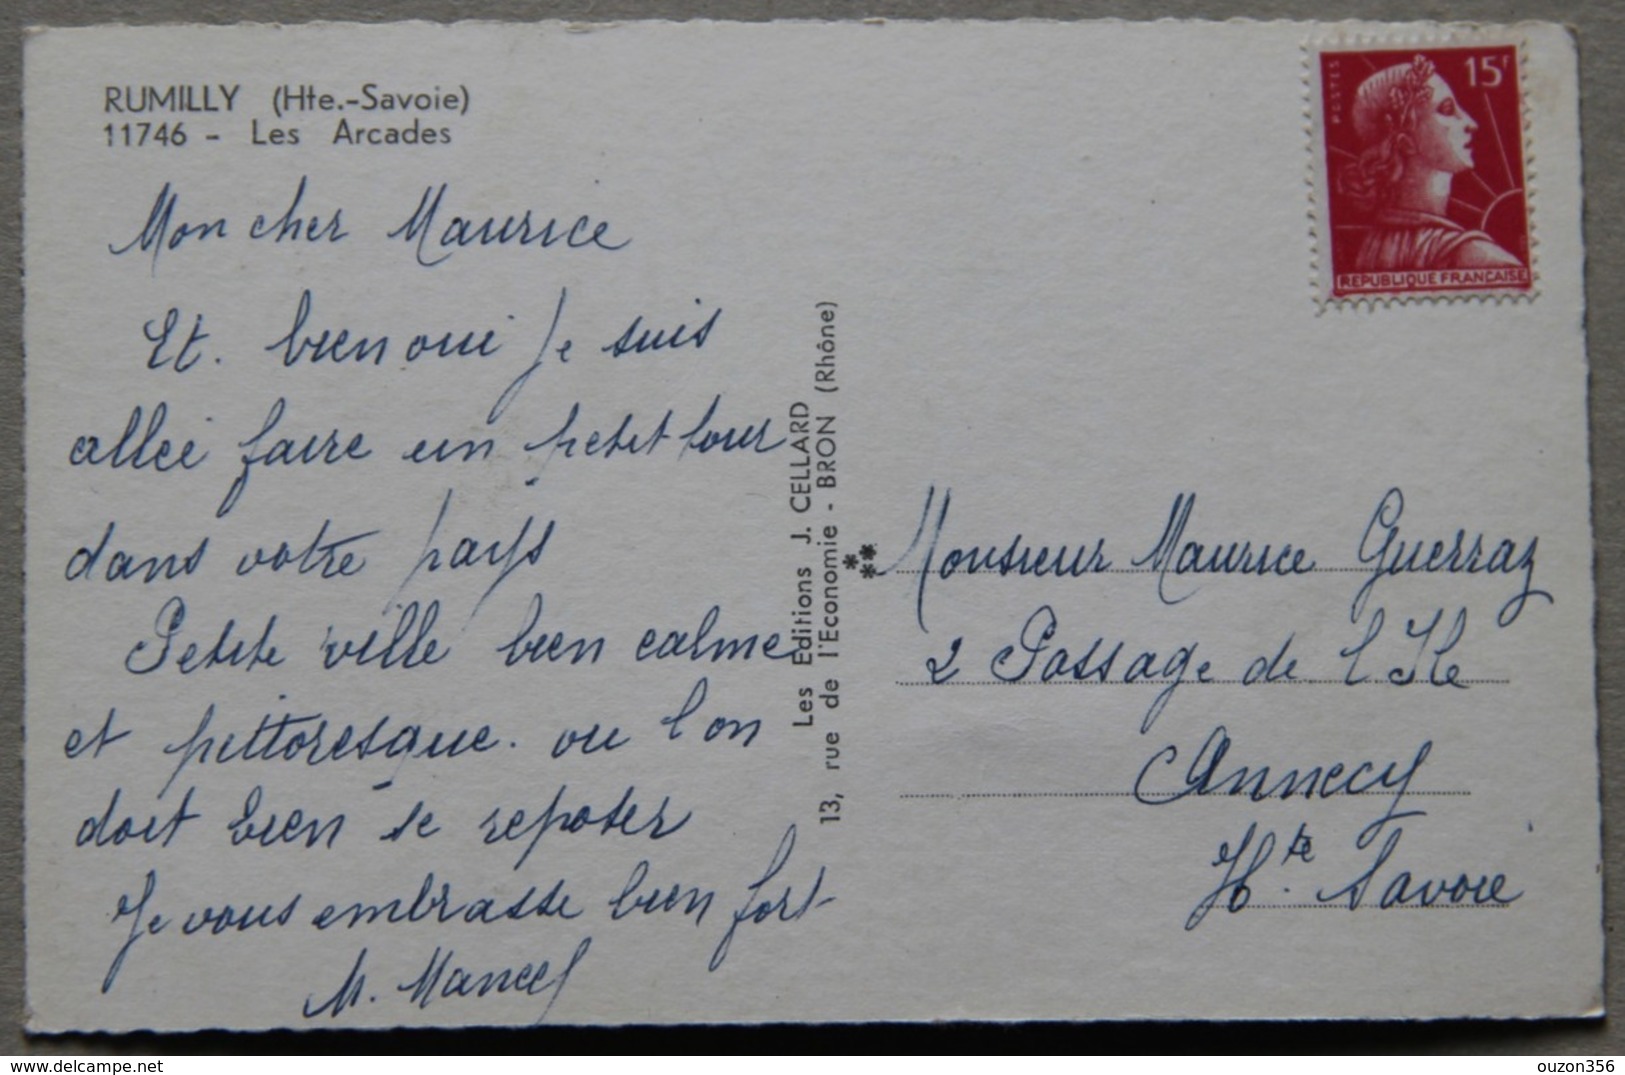 RUMILLY (Hte.-Savoie)
11746 - Les Arcades
Mon cher Maurice
Et. bien oui je suis
allée faire un petit tour
dans votre pays
Petite ville bien calme
et pittoresque. ou l'on
doit bien se reposer
Je vous embrasse bien fort
M.
Les Editions J. CELLARD
13, rue de l'Economie - BRON (Rhône)
POSTES
15F
REPUBLIQUE FRANCAISE
Monsieur Maurice Guerraz
2 Passage de l Ile
Annecy
Hte. Savoie
www.delcampe.net
ouzon356